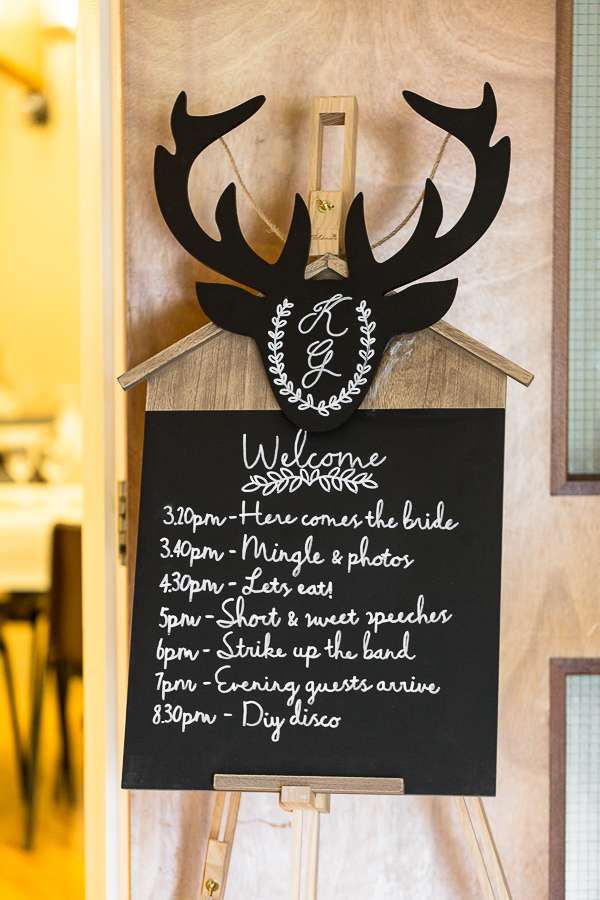 K
G
Welcome
3.20pm - Here comes the bride
3.40pm - Mingle & photos
4.30pm - Lets eat!
5pm - Short & sweet speeches
6pm - Strike up the band
7pm - Evening guests arrive
8.30pm - Diy disco